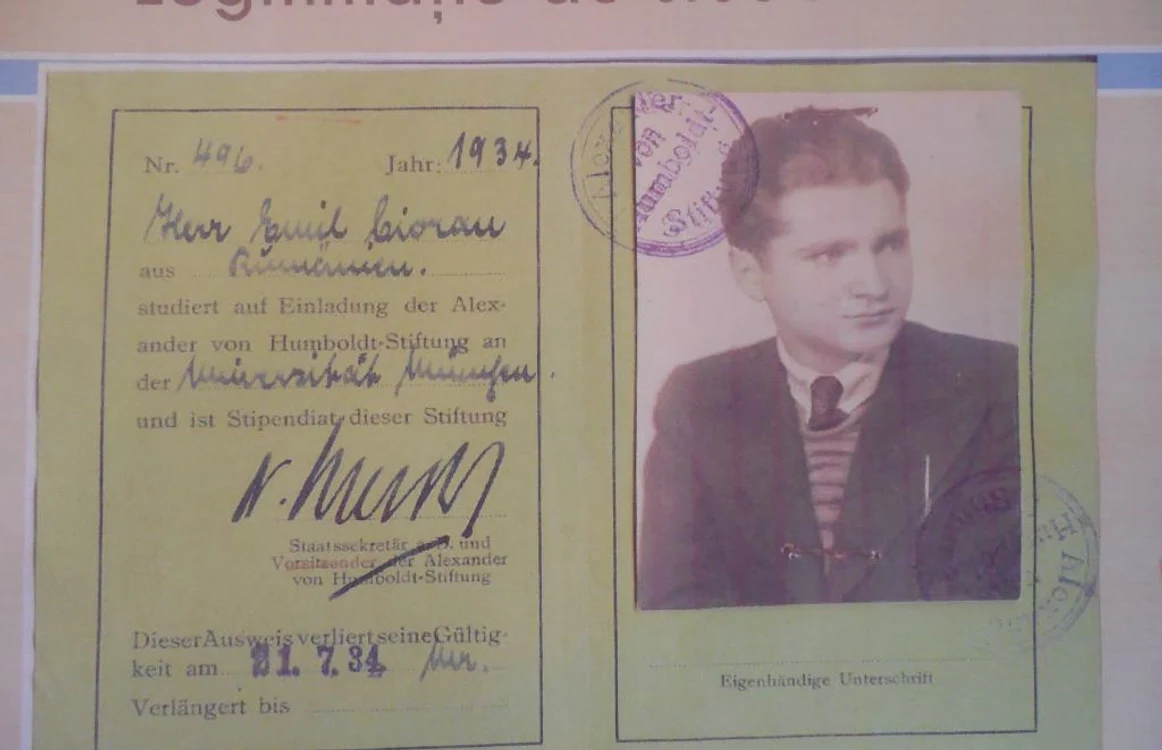 Nr. 496.
Jahr: 1934.
Herr Emil Cioran
aus Rumänien.
studiert auf Einladung der Alex-
ander von Humboldt-Stiftung an
der Universität München.
und ist Stipendiat dieser Stiftung
Staatssekretär a.D. und
Vorsitzender der Alexander
von Humboldt-Stiftung
Dieser Ausweis verliert seine Gültig-
keit am 31. 7. 34
Verlängert bis
Alexander
von
Humboldt-
Stiftung
Eigenhändige Unterschrift